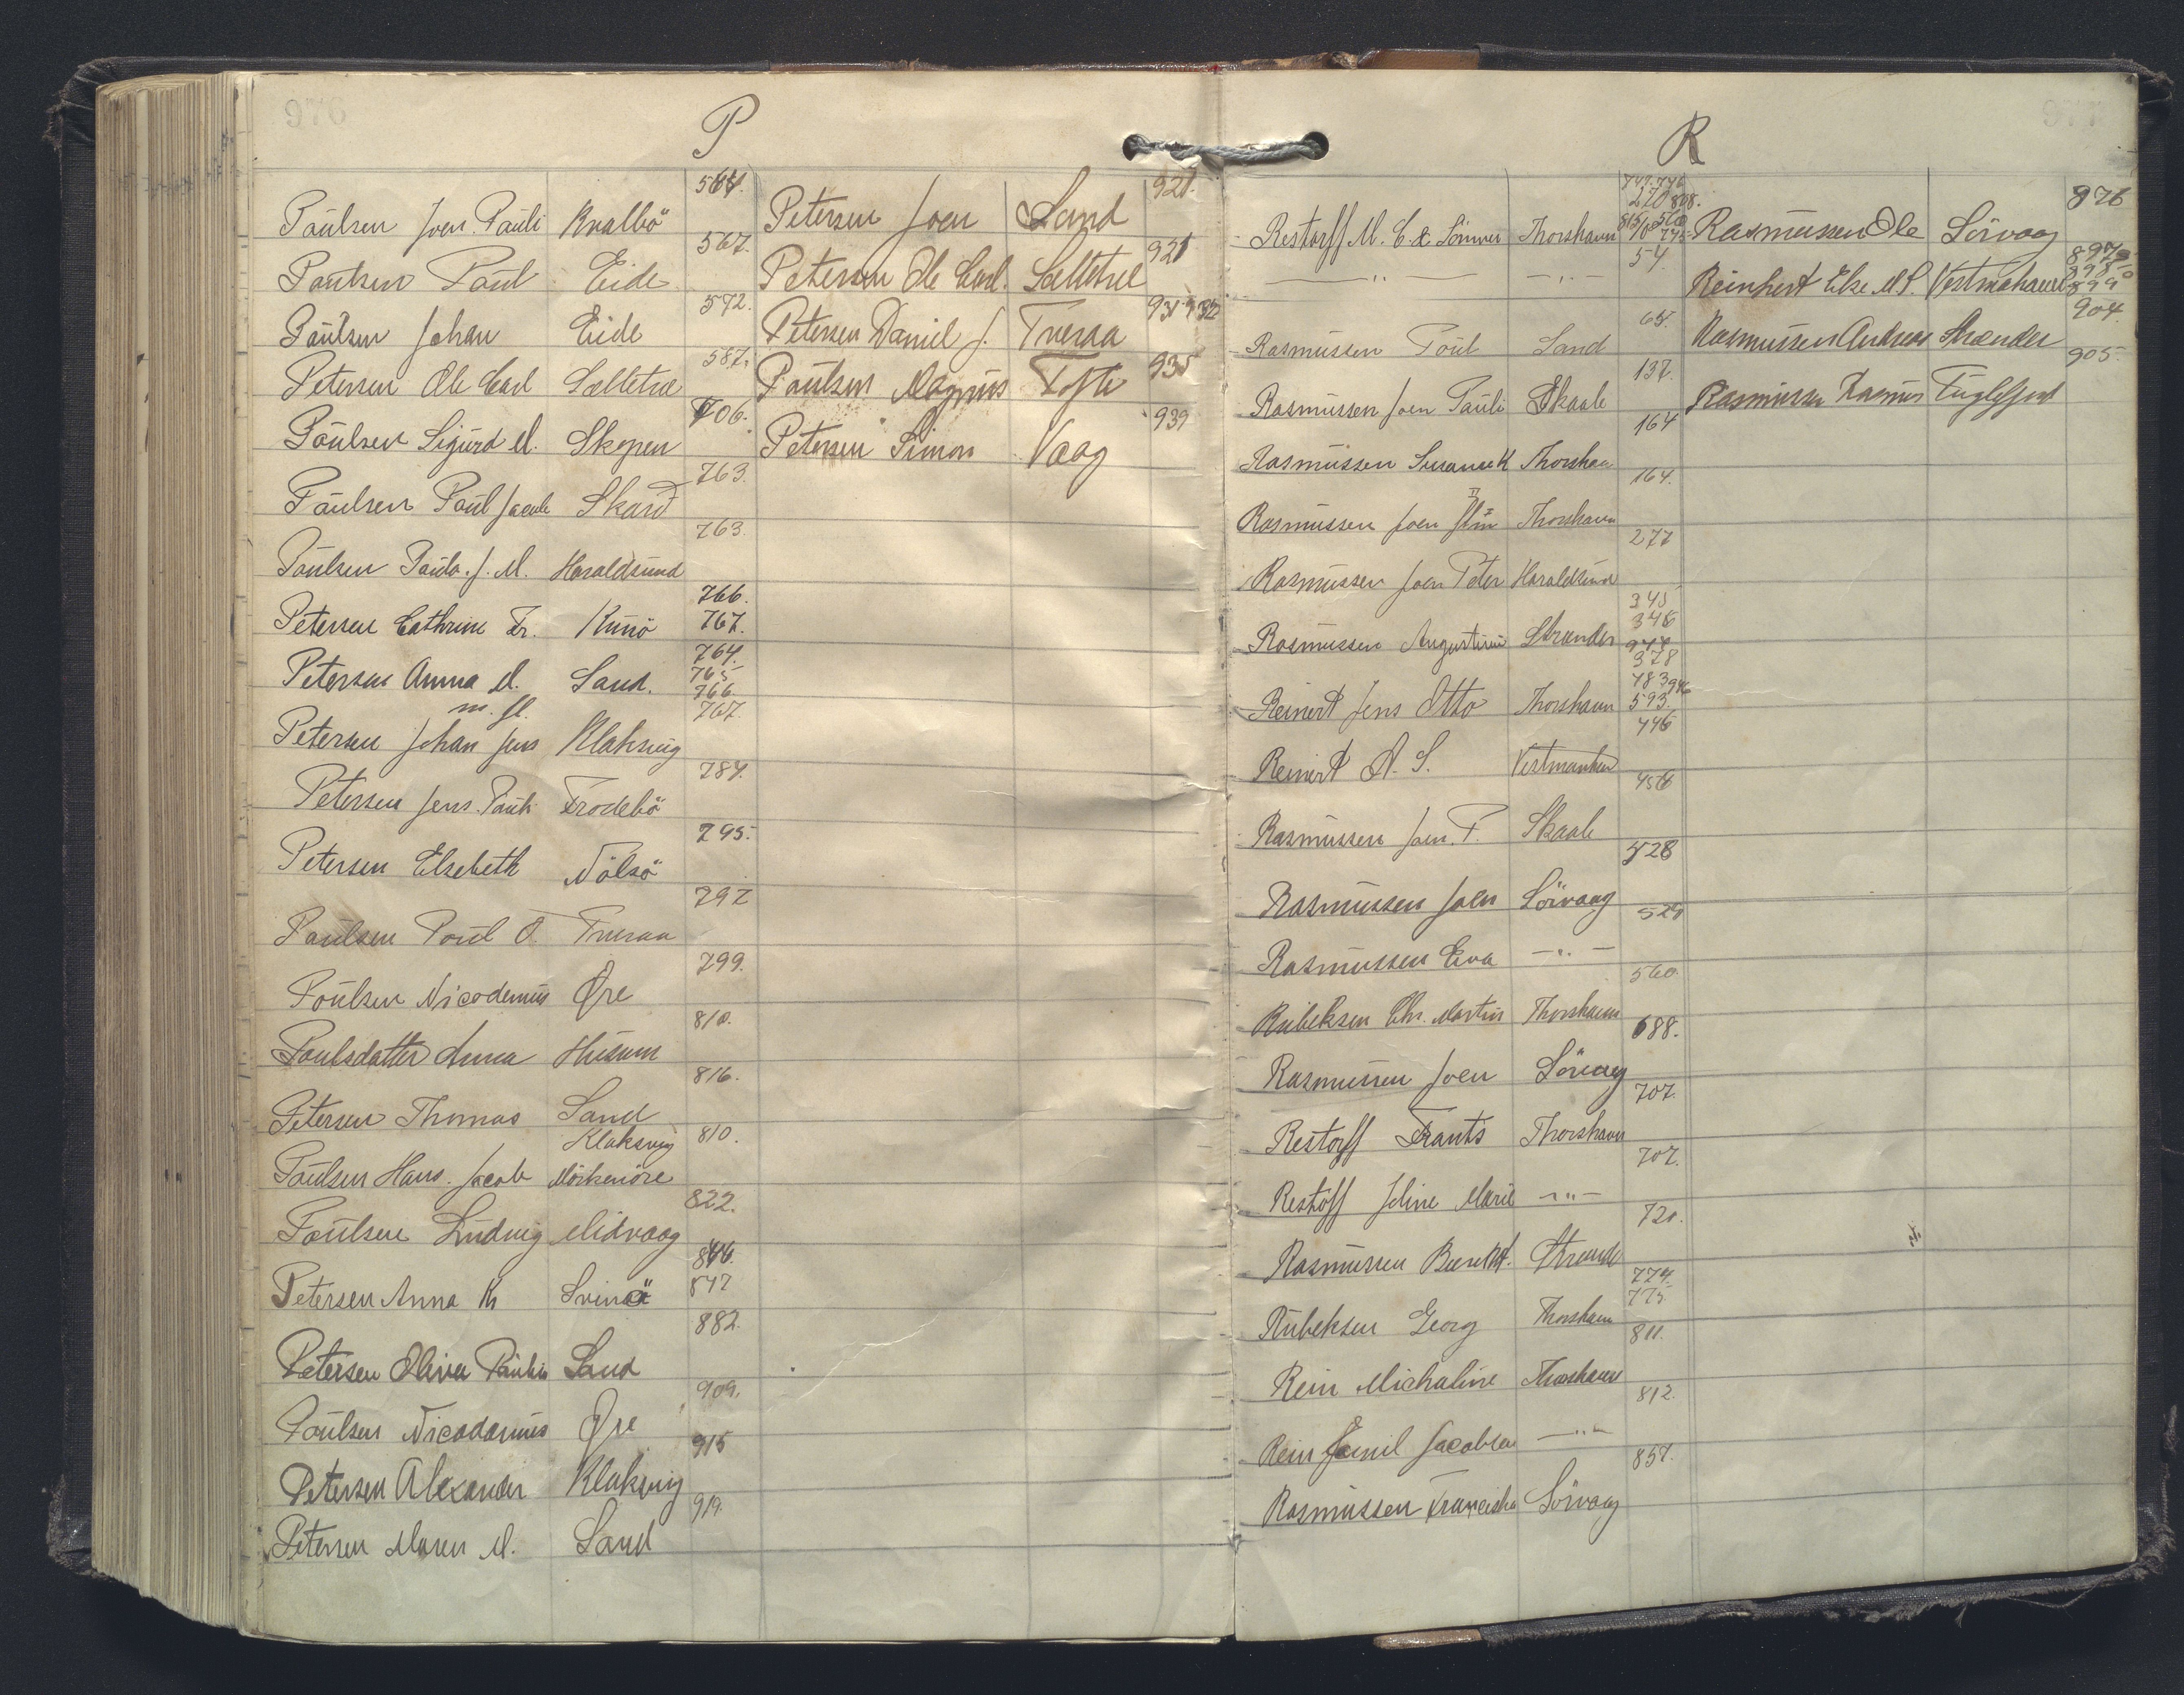 P
Poulsen Joen Pauli Kvalbö 564.
Poulsen Poul Eide 567.
Poulsen Johan Eide 572.
Petersen Ole Carl Selletræ 587.
Poulsen Sigurd M. Skopen 706.
Poulsen Poul Jacob Skard 763.
Poulsen Paula J. M. Haraldsund 763.
Petersen Cathrine Fr. Kunö 766. 767.
Petersen Anna M. Sand. 764. 765
m. fl. 766. 767.
Petersen Johan Jens Klaksvig
Petersen Jens Pauli Frodebö 784.
Petersen Elsebeth Nölsö 795.
Poulsen Poul O. Fueraa 797
Poulsen Nicodemus Øre 799.
Poulsdatter Anna Husum 810.
Petersen Thomas Sand 816.
Klaksvig
Poulsen Hans Jacob Mörkenöre 810.
Poulsen Ludvig Midvaag 822.
Petersen Anna K Svinö 846. 847
Petersen Oliva Paulin Sand 882.
Poulsen Nicodemus Øre 909.
Petersen Alexander Klaksvig 915
Petersen Maren M. Sand 919.
Petersen Joen Sand 921.
Petersen Ole Carl. Selletræ 921
Petersen Daniel J. Fueraa 931 932
Poulsen Magnus Tofte 935
Petersen Simon Vaag 939
R
Restorff M. C. & Sönner Thorshavn 270 808.
— " — — " — 54.
Rasmussen Poul Sand 65.
Rasmussen Joen Pauli Skaale 137.
Rasmussen Susanne K Thorshavn 164
Rasmussen Joen Thorshavn 164.
Rasmussen Joen Peter Haraldsund 277
Rasmussen Augustinus Strander 345 348
378
Reinert Jens Otto Thorshavn 483 946 593.
Reinert A. S. Vestmanhavn 446
Rasmussen Joen. P. Skaale 456
Rasmussen Joen Sörvaag 428
Rasmussen Eva — " — 529
Rubeksen Chr. Martin Thorshavn 560
Rasmussen Joen Sörvaag 688.
Restorff Frants Thorshavn 707.
Restorff Joline Marie — " — 707.
Rasmussen Strand 720.
Rubeksen Georg Thorshavn 774. 775
Rein Michaline Thorshavn 811.
Rein Emil Jacobsen — " — 812.
Rasmussen Franciska Sörvaag 857.
Rasmussen Ole Sörvaag 876
Reinhert Else M S. Vestmahavn 897 898 899
Rasmussen Andreas Strender 904.
Rasmussen Rasmus Fuglefjord 905.